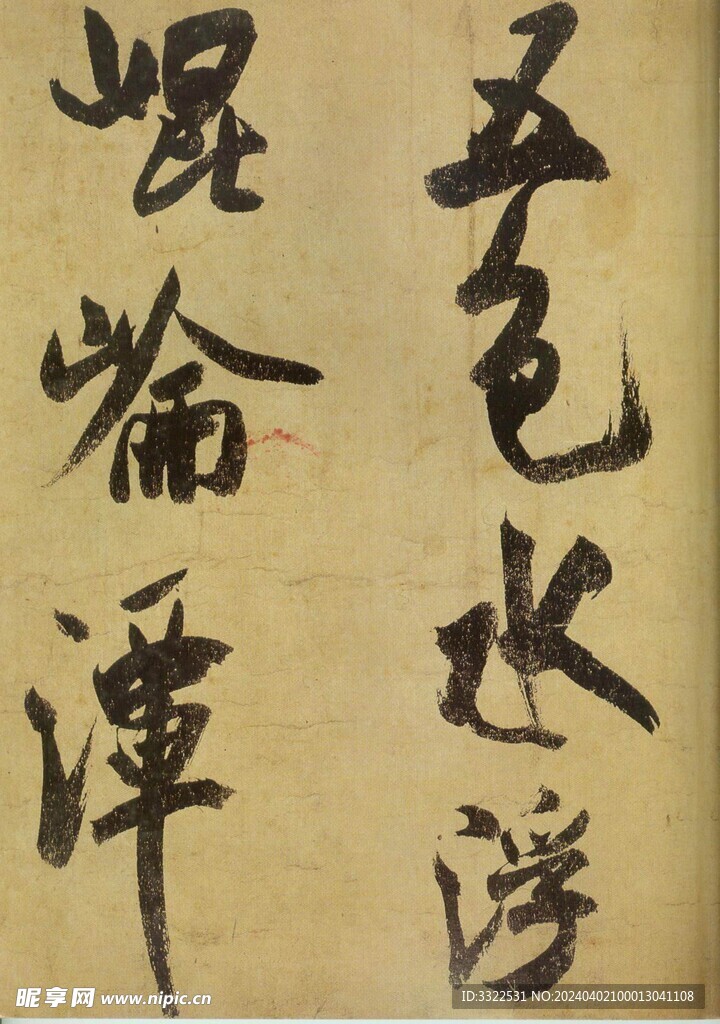 五色水浮
崐崘潭
昵享网 www.nipic.cn
ID:3322531 NO:20240402100013041108